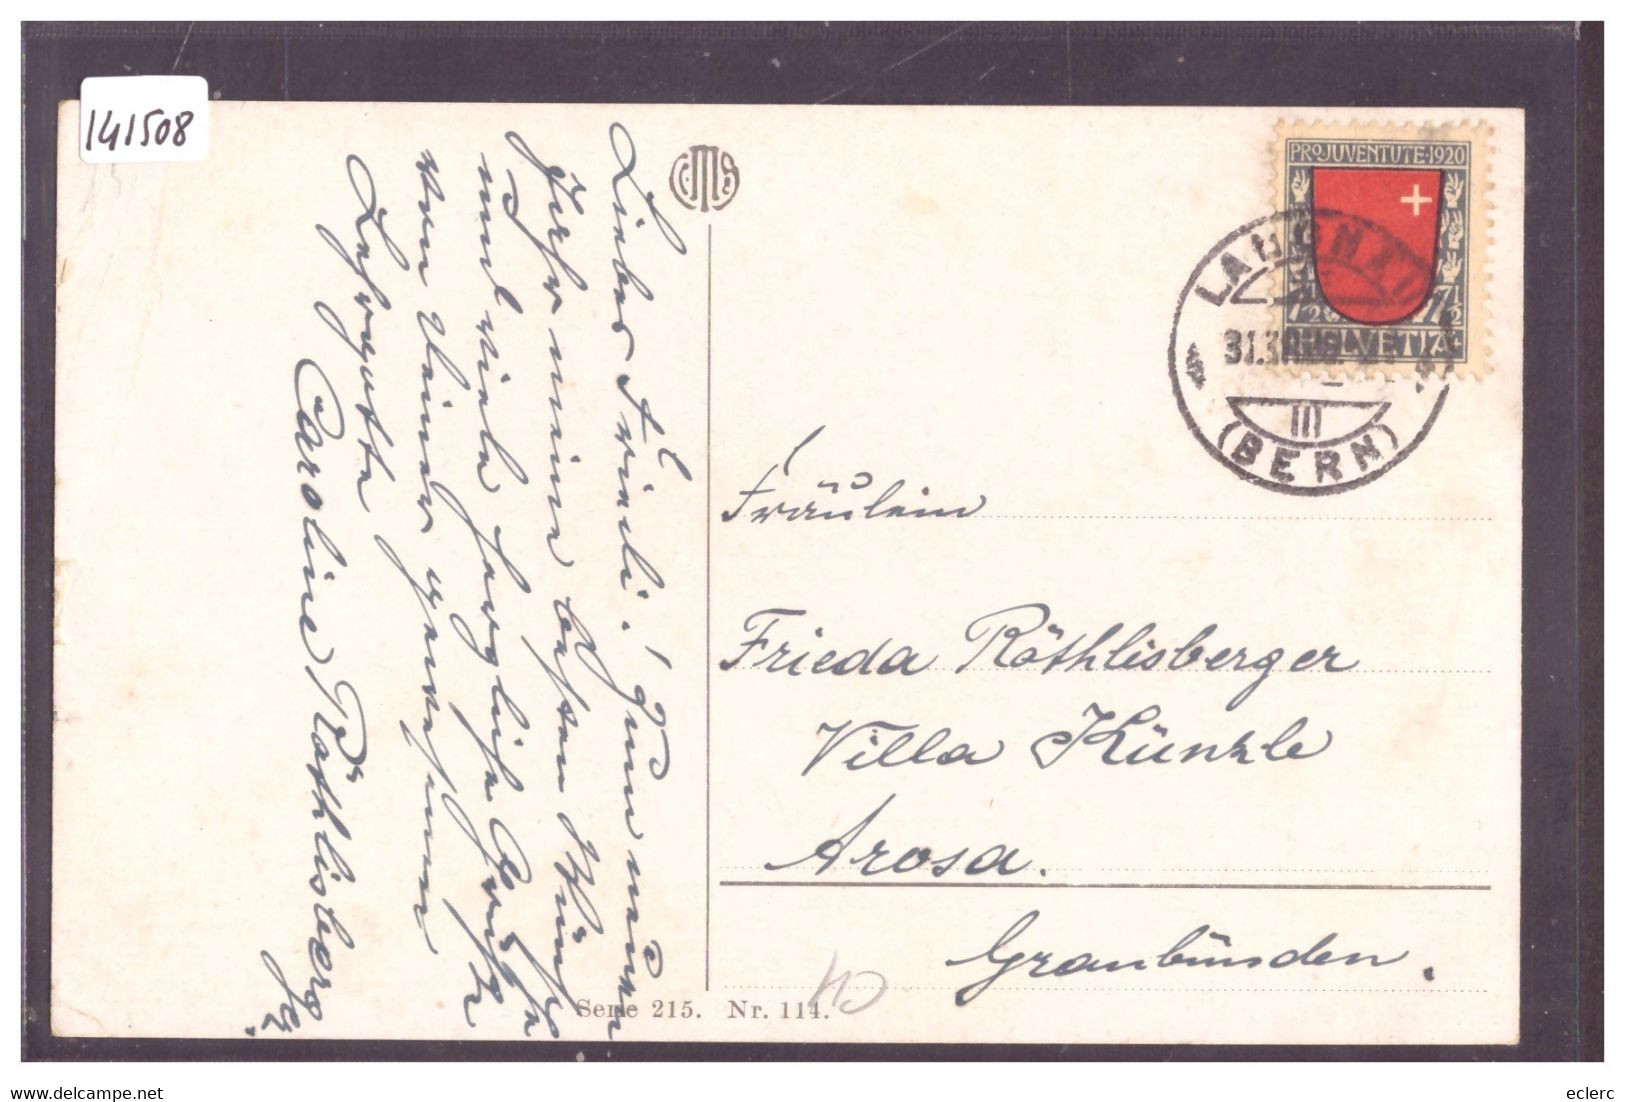 141508
Lieber Frieda! Zum neuen
Jahr meine besten Wünsche
und viele herzliche Grüsse
von Deiner
Caroline Röthlisberg
PRO JUVENTUTE·1920
7½ 7½
HELVETIA
LANGNAU
31.
III
(BERN)
Fräulein
Frieda Röthlisberger
Villa Künzle
Arosa.
Graubünden.
Serie 215. Nr. 114.
delcampe.net
eclerc